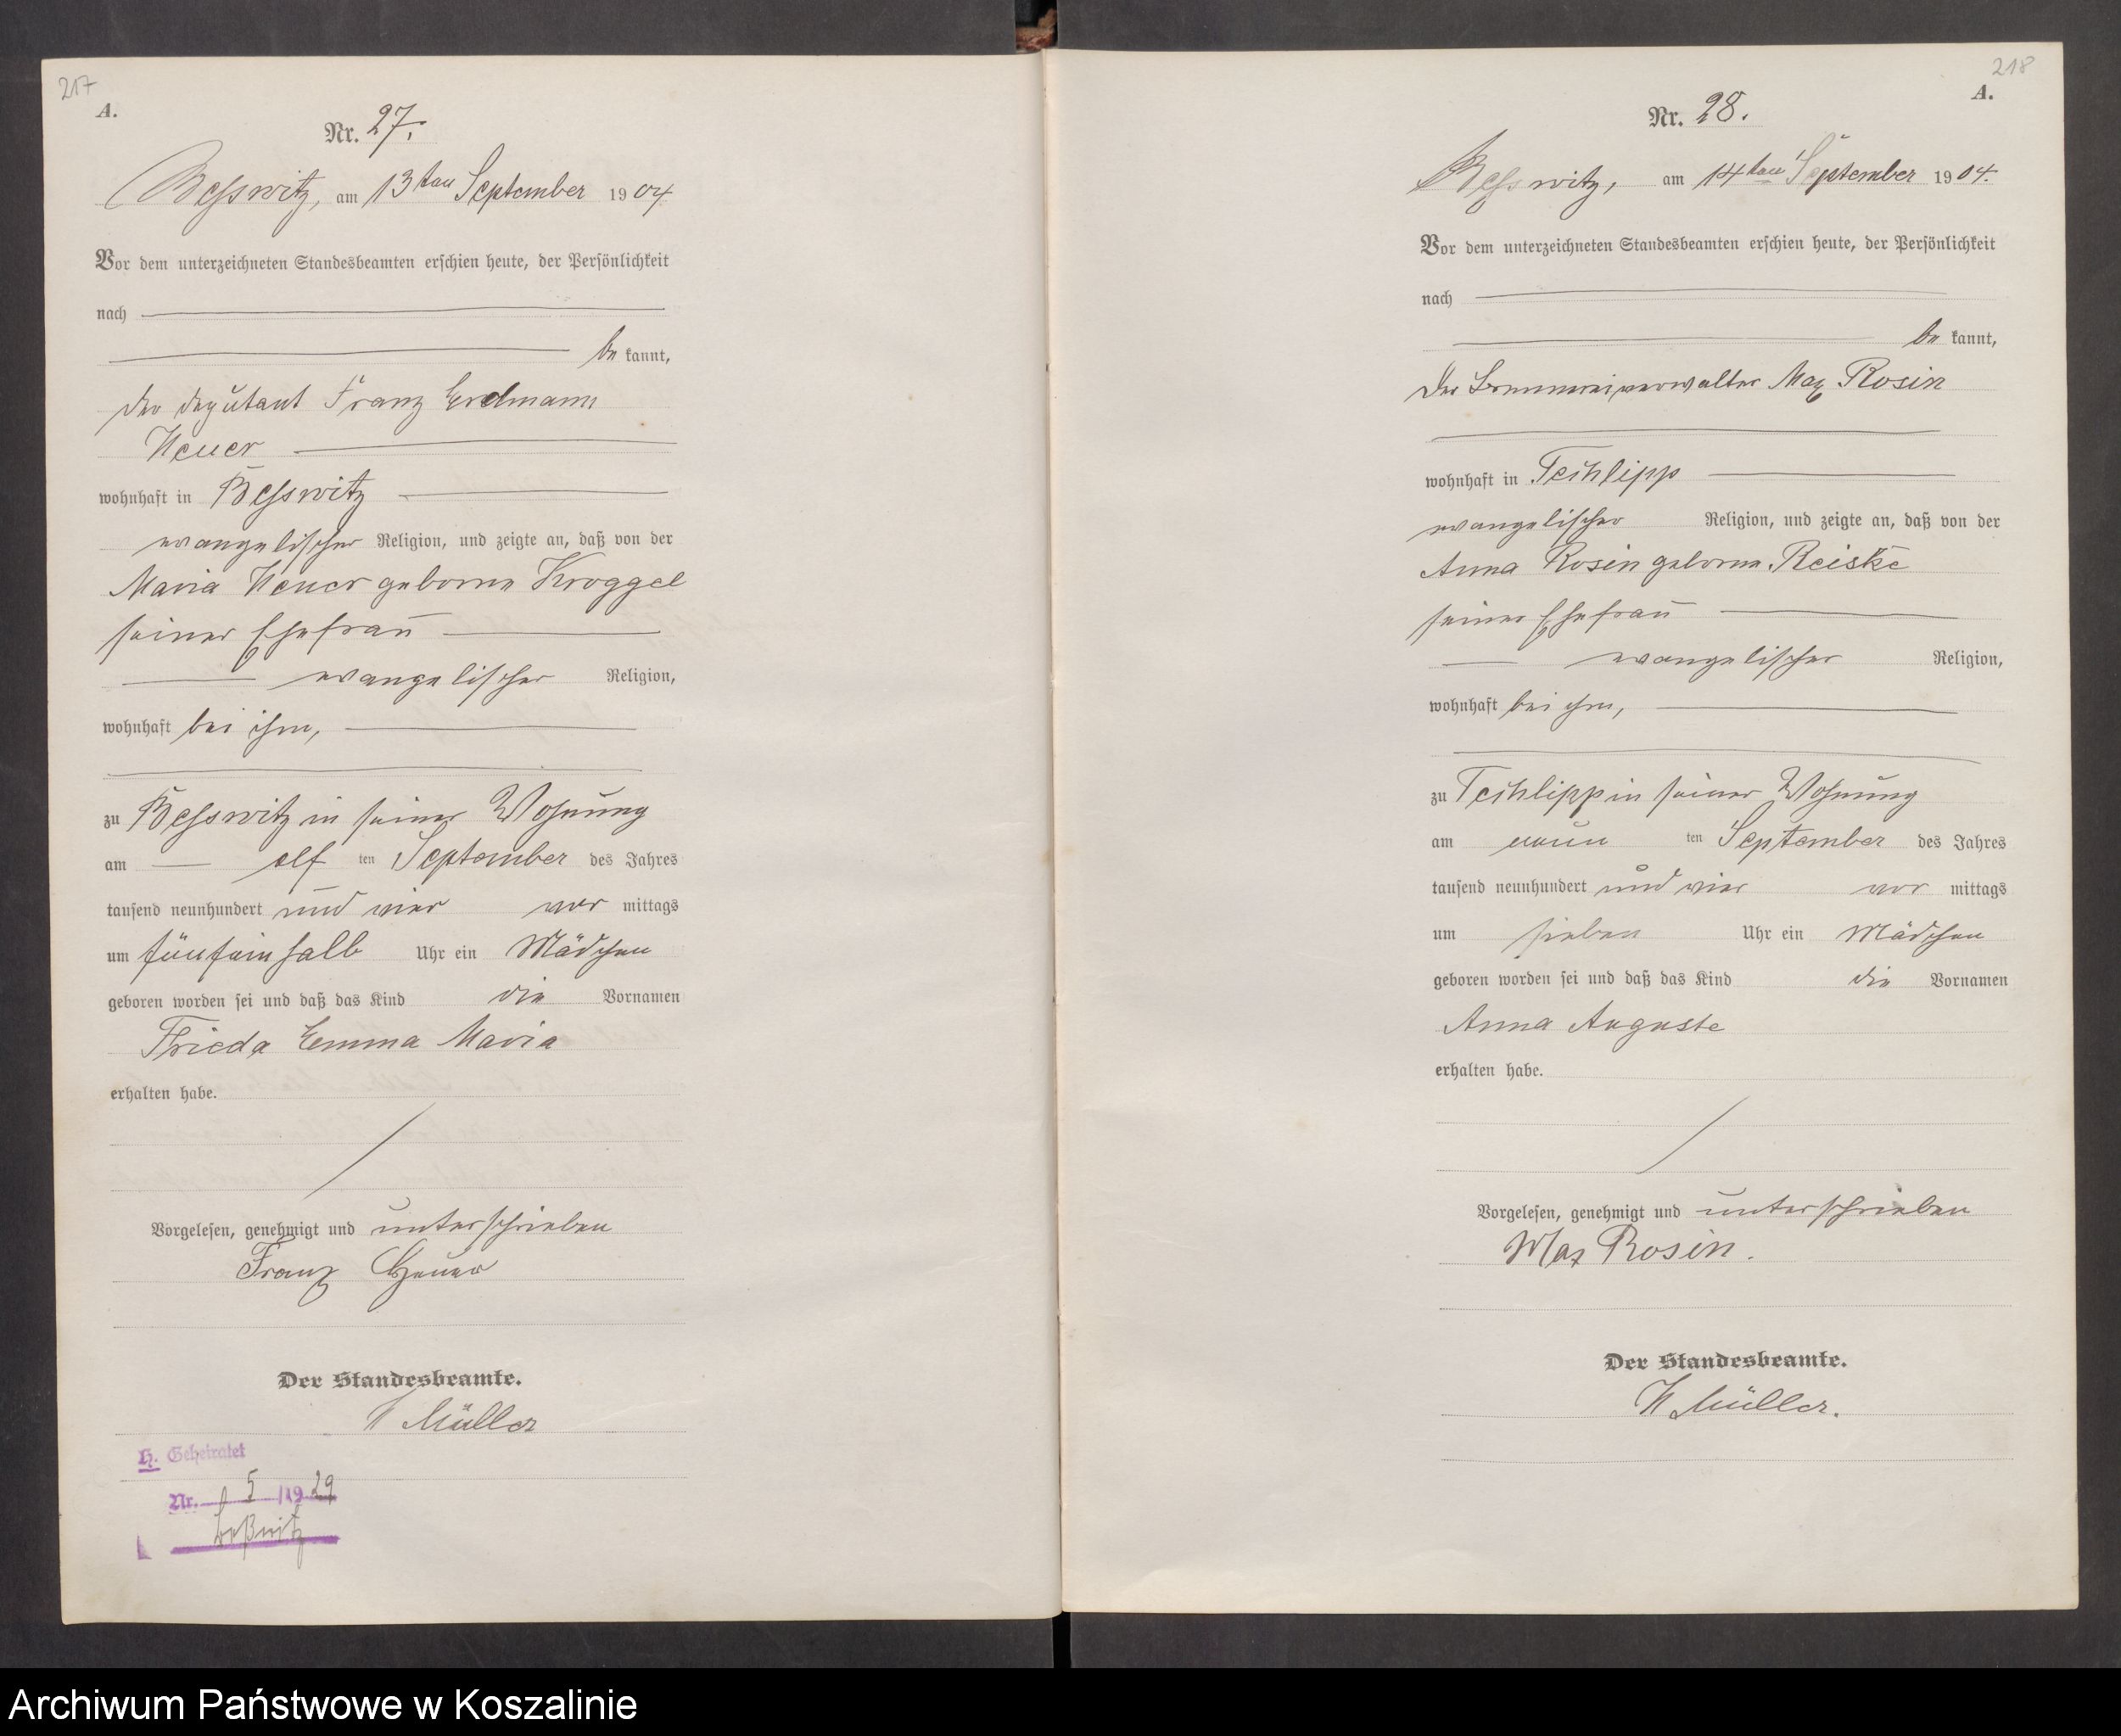 217
A.
Nr. 27.
Besswitz, am 13ten September 1904.
Vor dem unterzeichneten Standesbeamten erschien heute, der Persönlichkeit
nach
be kannt,
der Deputant Franz Erdmann
Heuer
wohnhaft in Besswitz
evangelischer Religion, und zeigte an, daß von der
Maria Heuer geborne Kroggel
seiner Ehefrau
evangelischer Religion,
wohnhaft bei ihm,
zu Besswitz in seiner Wohnung
am elf ten September des Jahres
tausend neunhundert und vier vor mittags
um fünfeinhalb Uhr ein Mädchen
geboren worden sei und daß das Kind die Vornamen
Frieda Emma Maria
erhalten habe.
Vorgelesen, genehmigt und unterschrieben
Franz Heuer
Der Standesbeamte.
H Müller
H. Geheiratet
Nr. 5 /1929
Beßwitz
218
A.
Nr. 28.
Besswitz, am 14ten September 1904.
Vor dem unterzeichneten Standesbeamten erschien heute, der Persönlichkeit
nach
be kannt,
der Brennereiverwalter Max Rosin
wohnhaft in Techlipp
evangelischer Religion, und zeigte an, daß von der
Anna Rosin geborne Reiske
seiner Ehefrau
evangelischer Religion,
wohnhaft bei ihm,
zu Techlipp in seiner Wohnung
am neun ten September des Jahres
tausend neunhundert und vier vor mittags
um sieben Uhr ein Mädchen
geboren worden sei und daß das Kind die Vornamen
Anna Auguste
erhalten habe.
Vorgelesen, genehmigt und unterschrieben
Max Rosin.
Der Standesbeamte.
H Müller.
Archiwum Państwowe w Koszalinie